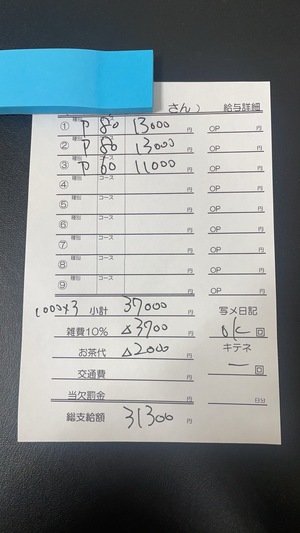 さん） 給与詳細
① 種別 P コース 80 13000 円 OP 円
② 種別 P コース 80 13000 円 OP 円
③ 種別 P コース 60 11000 円 OP 円
④ 種別 コース 円 OP 円
⑤ 種別 コース 円 OP 円
⑥ 種別 コース 円 OP 円
⑦ 種別 コース 円 OP 円
⑧ 種別 コース 円 OP 円
⑨ 種別 コース 円 OP 円
1000×3 小計 37000 円 写メ日記
雑費10% △3700 円 ok 回
お茶代 △2000 円 キテネ
交通費 円 ー 回
当欠罰金 円 日分
総支給額 31300 円